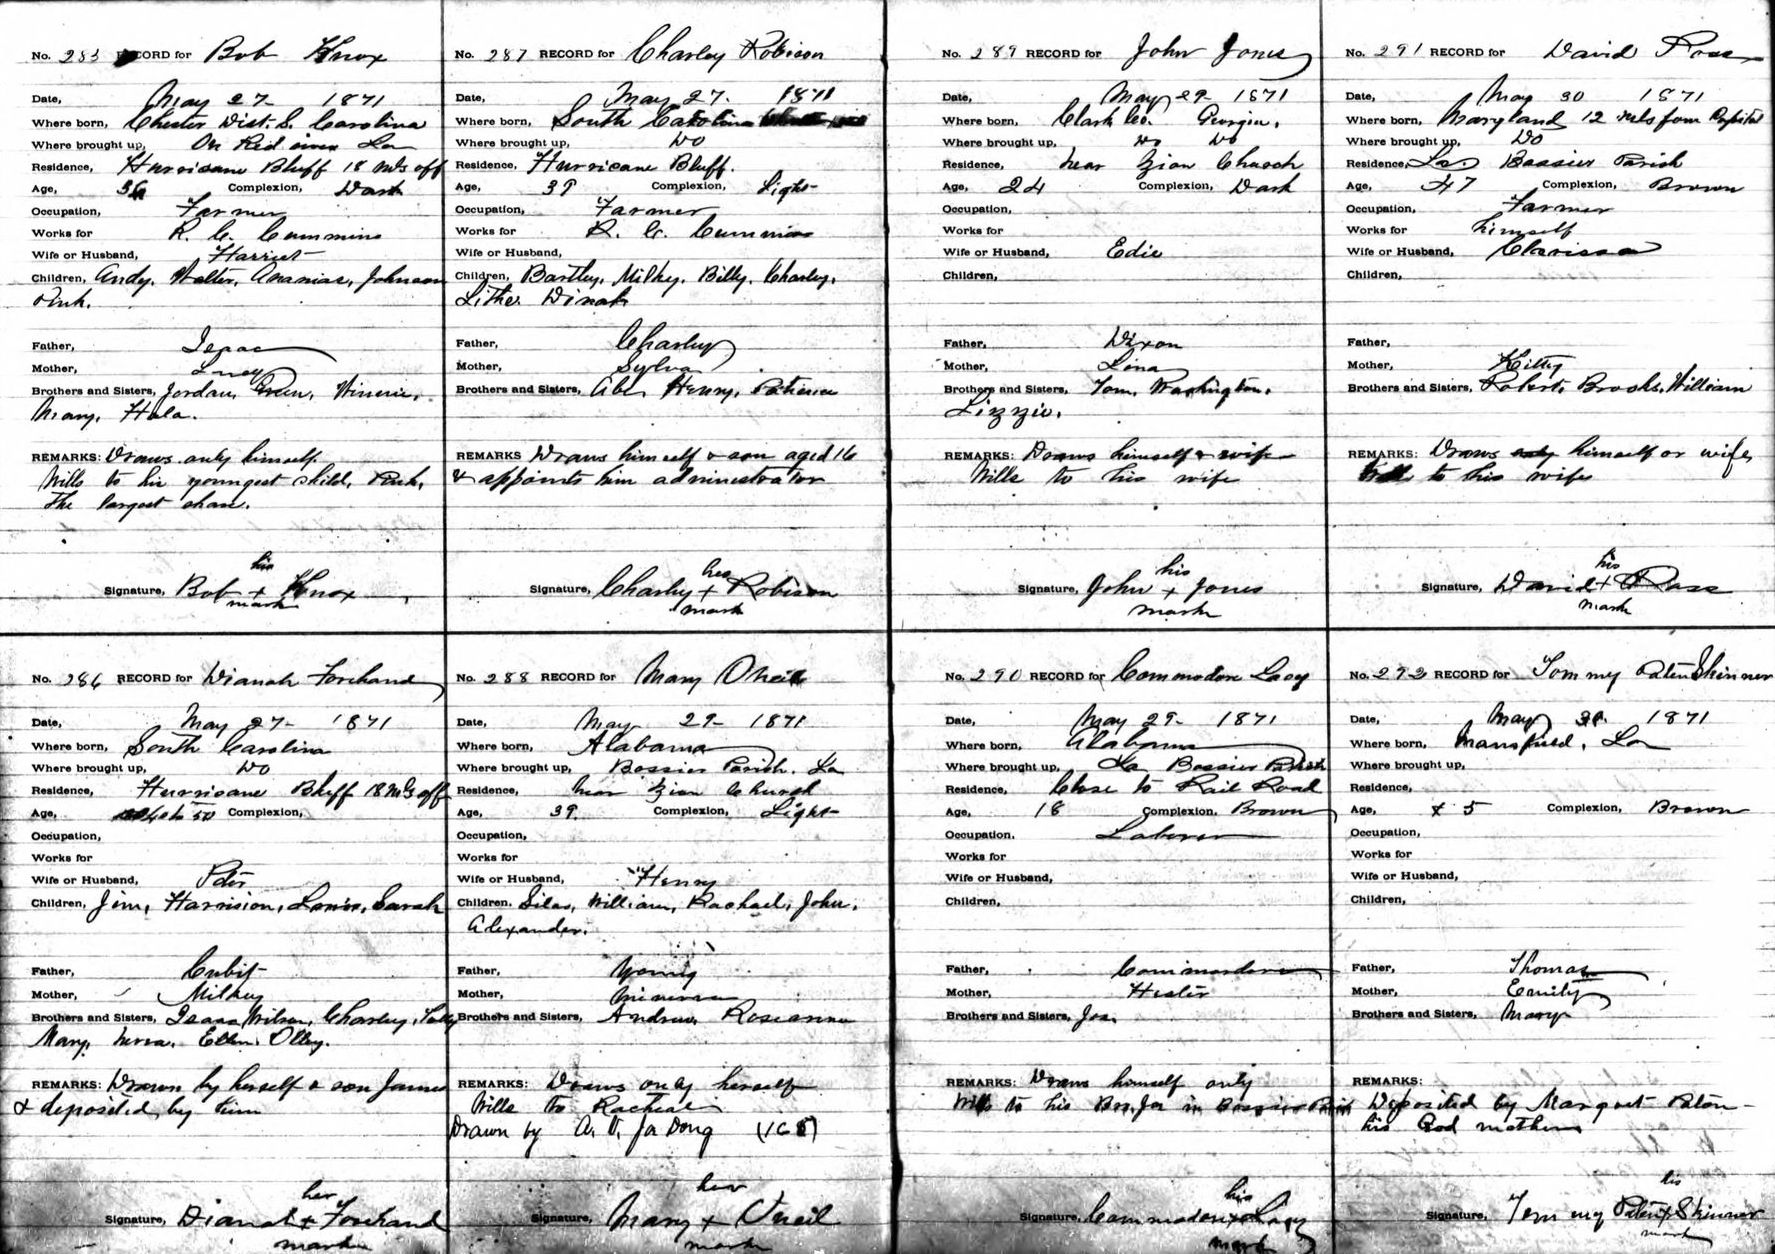 No. 285 RECORD for Bob Knox
Date, May 27 1871
Where born, Chester Dist. S. Carolina
Where brought up, On Red river La
Residence, Hurricane Bluff 18 mls off
Age, 36 Complexion, Dark
Occupation, Farmer
Works for R. C. Cummins
Wife or Husband, Harriet
Children, Andy, Walter, Ananias, Johnson
Pink.
Father, Isaac
Mother, Lucy
Brothers and Sisters, Jordan, Green, Winnie,
Mary, Hala.
REMARKS: Draws only himself.
Wills to his youngest child, Pink,
The largest share.
his
Signature, Bob + Knox
mark
No. 286 RECORD for Dianah Forehand
Date, May 27- 1871
Where born, South Carolina
Where brought up, Do
Residence, Hurricane Bluff 18 mls off
Age, 40 to 50 Complexion,
Occupation,
Works for
Wife or Husband, Peter
Children, Jim, Harrision, Sarah
Father, Cubit
Mother, Milkey
Brothers and Sisters, Isaac Wilson, Charley,
Mary, Ellen. Olley.
REMARKS: Drawn by herself & son James
& deposited by him
her
Signature, Dianah + Forehand
mark
No. 287 RECORD for Charley Robison
Date, May 27. 1871
Where born, South Carolina
Where brought up, Do
Residence, Hurricane Bluff.
Age, 38 Complexion, Light
Occupation, Farmer
Works for R. C. Cummins
Wife or Husband,
Children, Bartley, Milkey, Billy, Charley,
Dinah
Father, Charley
Mother, Sylva
Brothers and Sisters, Abe, Henry, Patience
REMARKS Draws himself & son aged 16
& appoints him administrator
his
Signature, Charley + Robison
mark
No. 288 RECORD for Mary Oneil
Date, May 29- 1871
Where born, Alabama
Where brought up, Bossier Parish. La
Residence, near Zion Church
Age, 39. Complexion, Light
Occupation,
Works for
Wife or Husband, Henry
Children. Silas, William, Rachael, John,
Alexander.
Father, Young
Mother, Minerva
Brothers and Sisters, Andrew, Roseanna
REMARKS: Draws only herself
Wills to Racheal
Drawn by A. V.
her
Signature, Mary + Oneil
mark
No. 289 RECORD for John Jones
Date, May 29- 1871
Where born, Clark Co. Georgia.
Where brought up, Do Do
Residence, near Zion Church
Age, 24 Complexion, Dark
Occupation,
Works for
Wife or Husband, Edie
Children,
Father, Dixon
Mother, Lena
Brothers and Sisters, Tom, Washington,
Lizzie.
REMARKS: Draws himself & wife
Wills to his wife
his
Signature, John + Jones
mark
No. 290 RECORD for Commodore Lacy
Date, May 29- 1871
Where born, Alabama
Where brought up, La Bossier Parish
Residence, Close to Rail Road
Age, 18 Complexion, Brown
Occupation. Laborer
Works for
Wife or Husband,
Children,
Father, Commordore
Mother, Hester
Brothers and Sisters, Joe.
REMARKS: Draws himself only
Wills to his Bro. Joe in Bossier Parish
his
Signature, Commodore + Lacy
mark
No. 291 RECORD for David Ross
Date, May 30 1871
Where born, Maryland 12 mls from Capital
Where brought up, Do
Residence, La. Bossier Parish
Age, 47 Complexion, Brown
Occupation, Farmer
Works for himself
Wife or Husband, Clarissa
Children,
Father,
Mother, Kitty
Brothers and Sisters, Robert, Brooks, William
REMARKS: Draws himself or wife,
to his wife
his
Signature, David + Ross
mark
No. 292 RECORD for Tommy Paten Skinner
Date, May 1871
Where born, Mansfield, La
Where brought up,
Residence,
Age, 5 Complexion, Brown
Occupation,
Works for
Wife or Husband,
Children,
Father, Thomas
Mother, Emily
Brothers and Sisters, Mary
REMARKS:
Deposited by Margret Paton
his God mother
his
Signature, Tommy Paten + Skinner
mark